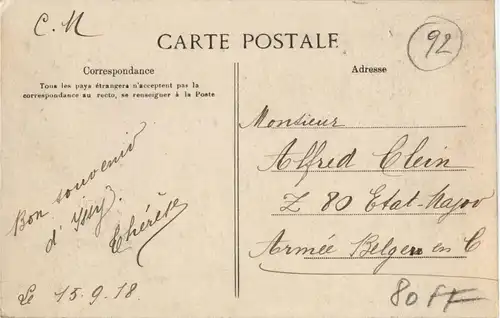 C. M
92
CARTE POSTALE
Correspondance
Tous les pays étrangers n'acceptent pas la
correspondance au recto, se renseigner à la Poste
Adresse
Bon souvenir
d'Issy.
Thérèse
Le 15.9.18
Monsieur
Alfred Clein
Z 80 Etat-Major
Armée Belge en C
80 FF